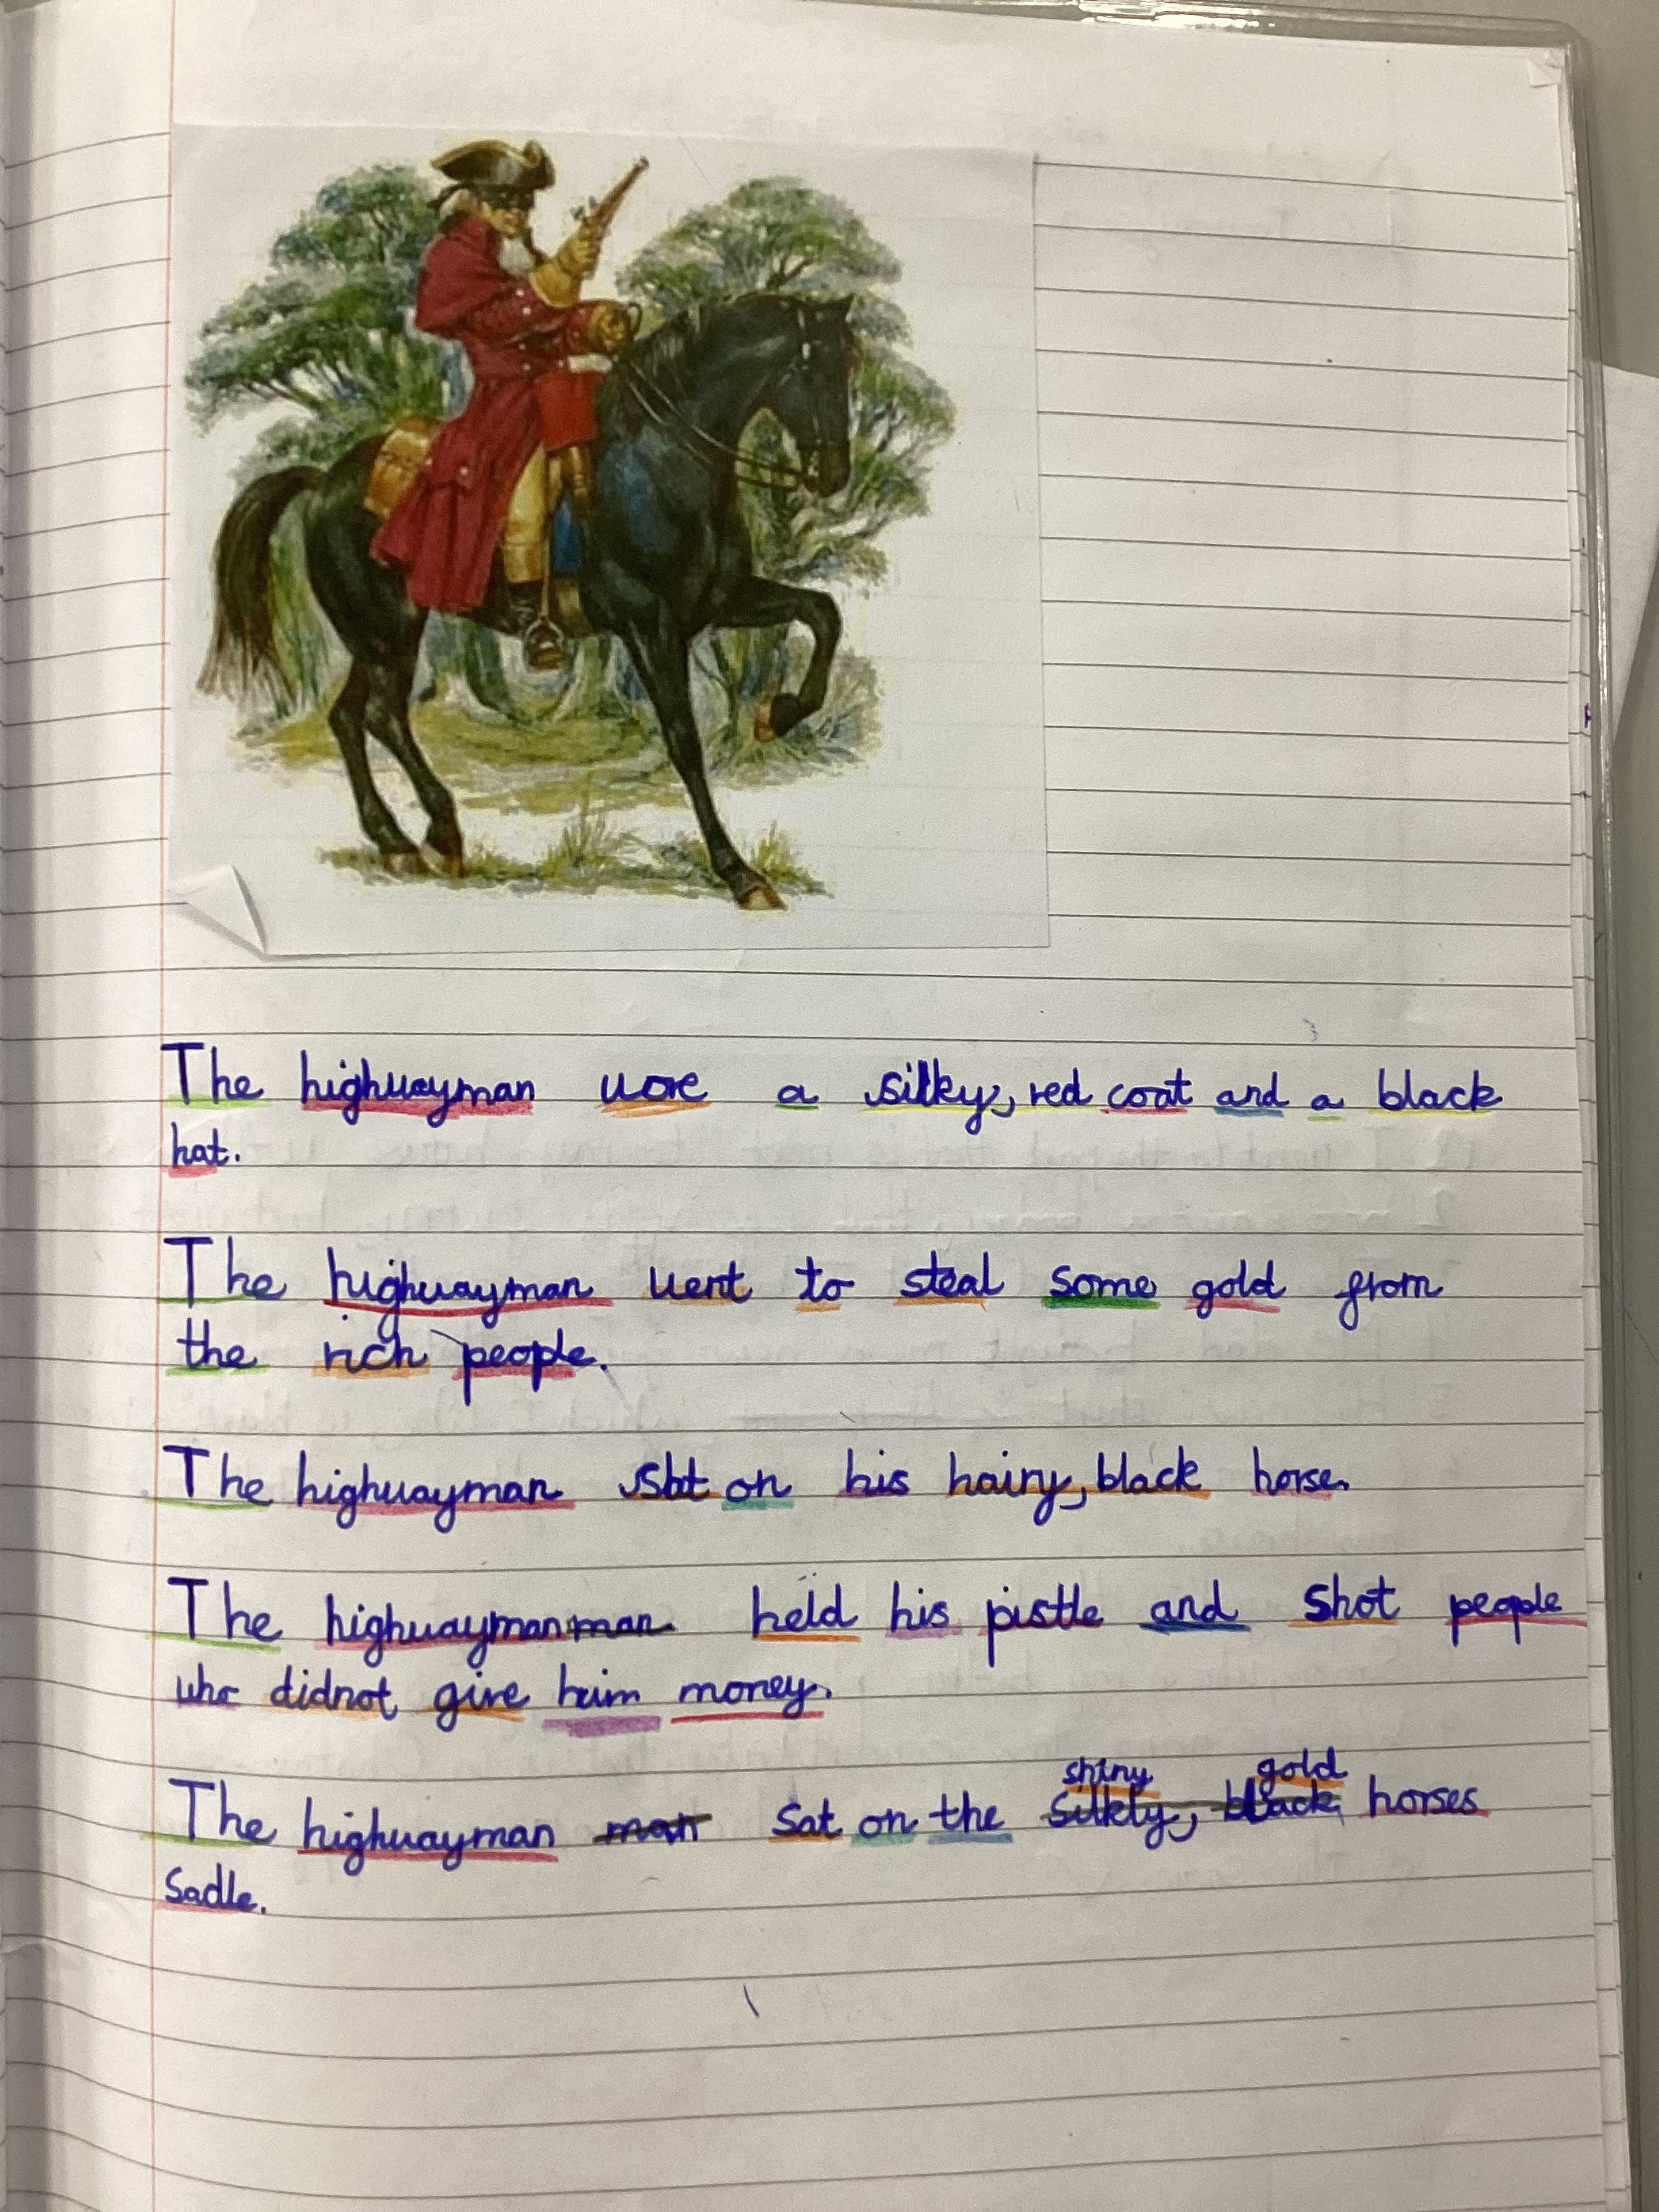 The highwayman wore a silky, red coat and a black
hat.
The highwayman went to steal some gold from
the rich people.
The highwayman sat on his hairy, black horse.
The highwayman man held his pistle and shot people
who didnot give him money.
shiny gold
The highwayman man sat on the silkly, black horses
sadle.